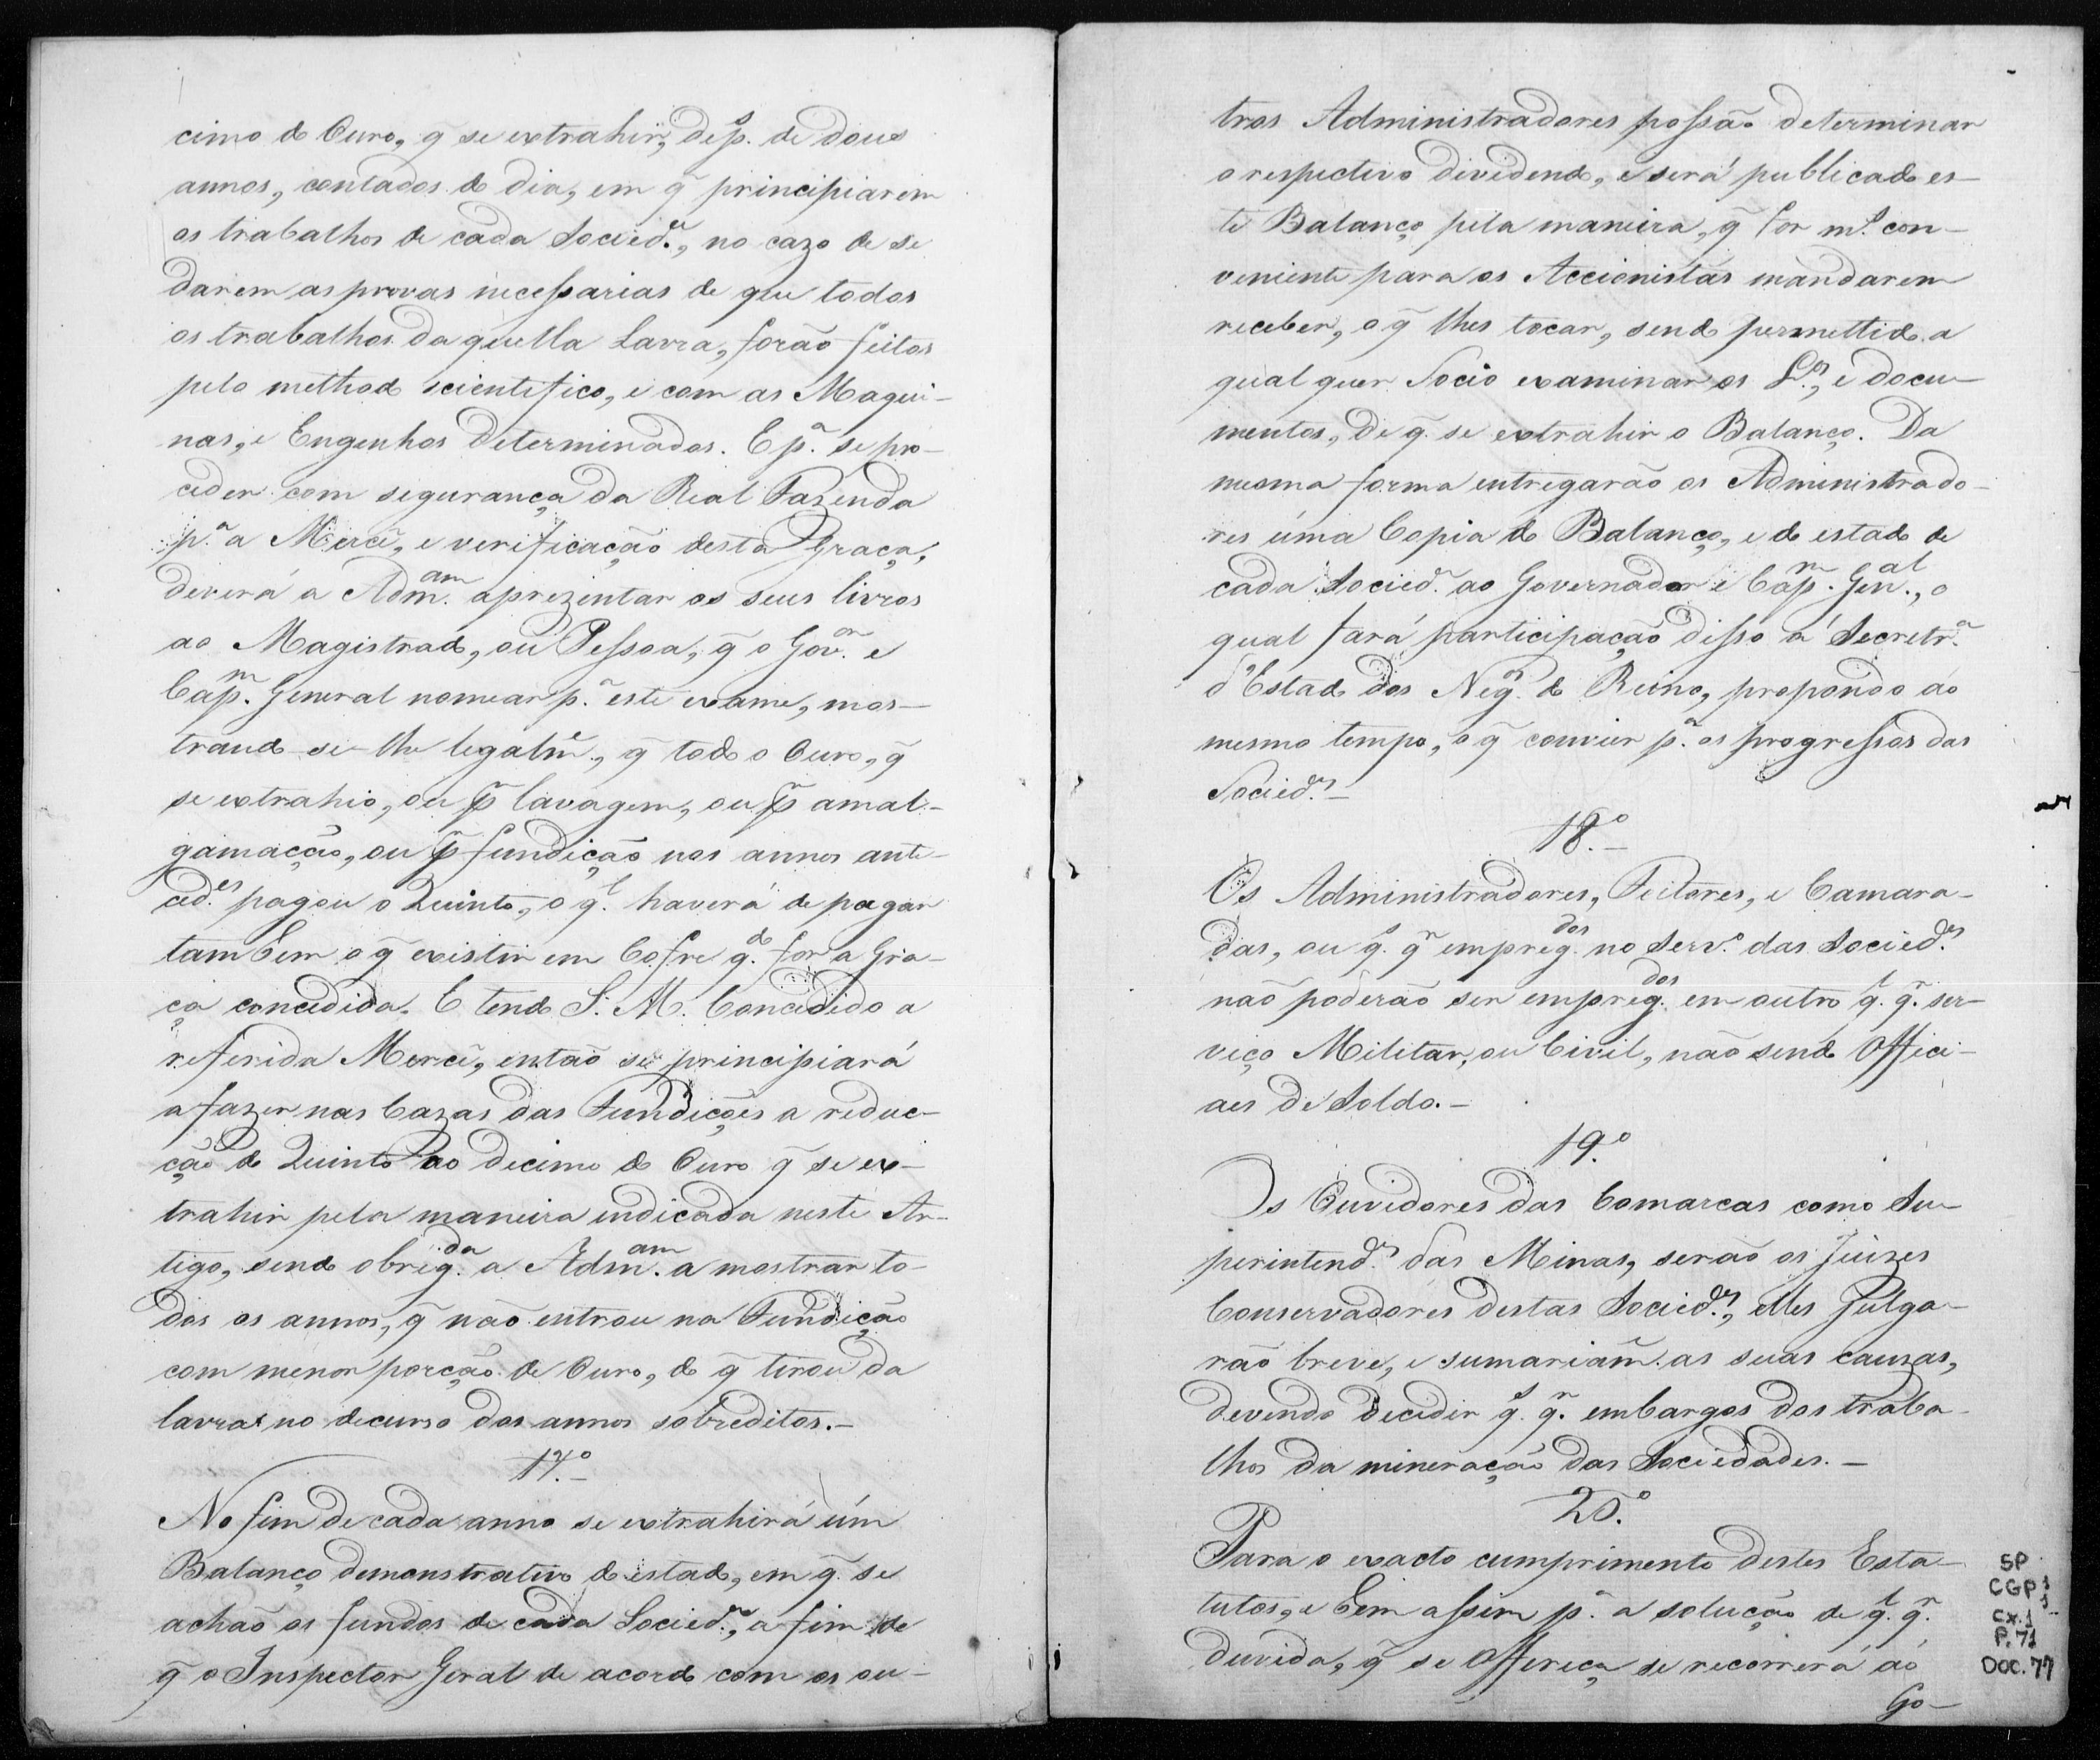 cimo do Ouro, q̃ se extrahir, desp. de dous
annos, contados do dia, em q̃ principiarem
os trabalhos de cada Socied.e, no cazo de se
darem as provas necessarias de que todos
os trabalhos da quella Lavra, forão feitos
pelo methodo scientifico, e com as Maqui-
nas, e Engenhos determinados. E p.a se pro-
ceder com segurança da Real Fazenda
p.a a Mercê, e verificação desta Graça,
deverá a Adm.am aprezentar os seus livros
ao Magistrado, ou Pessoa, q̃ o Gov.or e
Cap.m General nomear p.a este exame, mos-
trando-se-lhe legalm.e, q̃ todo o Ouro, q̃
se extrahio, ou p̃ lavagem, ou p̃ amal-
gamacção, ou p̃ fundição nos annos ante-
ced.es pagou o Quinto, o q.l haverá de pagar
tambem o q̃ existir em Cofre q.do for a Gra-
ça concedida. E tendo S. M. Concedido a
referida Mercê, então se principiará
a fazer nas Cazas das Fundições a reduc-
ção do Quinto ao decimo do Ouro q̃ se ex-
trahir pela maneira indicada neste Ar-
tigo, sendo obrig.da a Adm.am a mostrar to-
dos os annos, q̃ não entrou na Fundição
com menor porção de Ouro, do q̃ tirou da
lavra no decurso dos annos sobreditos.-
17.º
No fim de cada anno se extrahirá úm
Balanço demonstrativo do estado, em q̃ se
achão os fundos de cada Socied.e, a fim de
q̃ o Inspector Geral de acordo com os ou-
tros Administradores possão determinar
o respectivo dividendo, e será publicado es-
te Balanço pela maneira, q̃ for m.s con-
veniente para os Accionistas mandarem
receber, o q̃ lhes tocar, sendo permettido a
qual quer Socio examinar os L.os, e docu-
mentos, de q̃ se extrahir o Balanço. Da
mesma forma entregarão os Administrado-
res úma Copia do Balanço, e do estado de
cada Socied.e ao Governador e Cap.m Gen.al, o
qual fará participação disso á Secretr.a
d'Estado dos Neg.os do Reino, propondo ao
mesmo tempo, o q̃ convier p.a os progressos das
Socied.es-
18.º-
Os Administradores, Feitores, e Camara-
das, ou q.s q.r empreg.dos no Serv.o das Socied.es
não poderão ser empreg.dos em outro q.l q.r ser-
viço Militar, ou Civil, não sendo Offici-
aes de Soldo.-
19.º
Os Ouvidores das Comarcas como Su-
perintend.es das Minas, serão os Juizes
Conservadores destas Socied.es, elles Julga-
rão breve, e sumariam.e as suas cauzas,
devendo decidir q.s q.r embargos dos traba-
lhos da mineração das Sociedades.-
20.º
Para o exacto cumprimento destes Esta-
tutos, e bem assim p.a a solução de q.l q.r
duvida, q̃ se Offereça se recorrerá ao
Go-
SP
CGP1
Cx.1
P.71
DOC.77